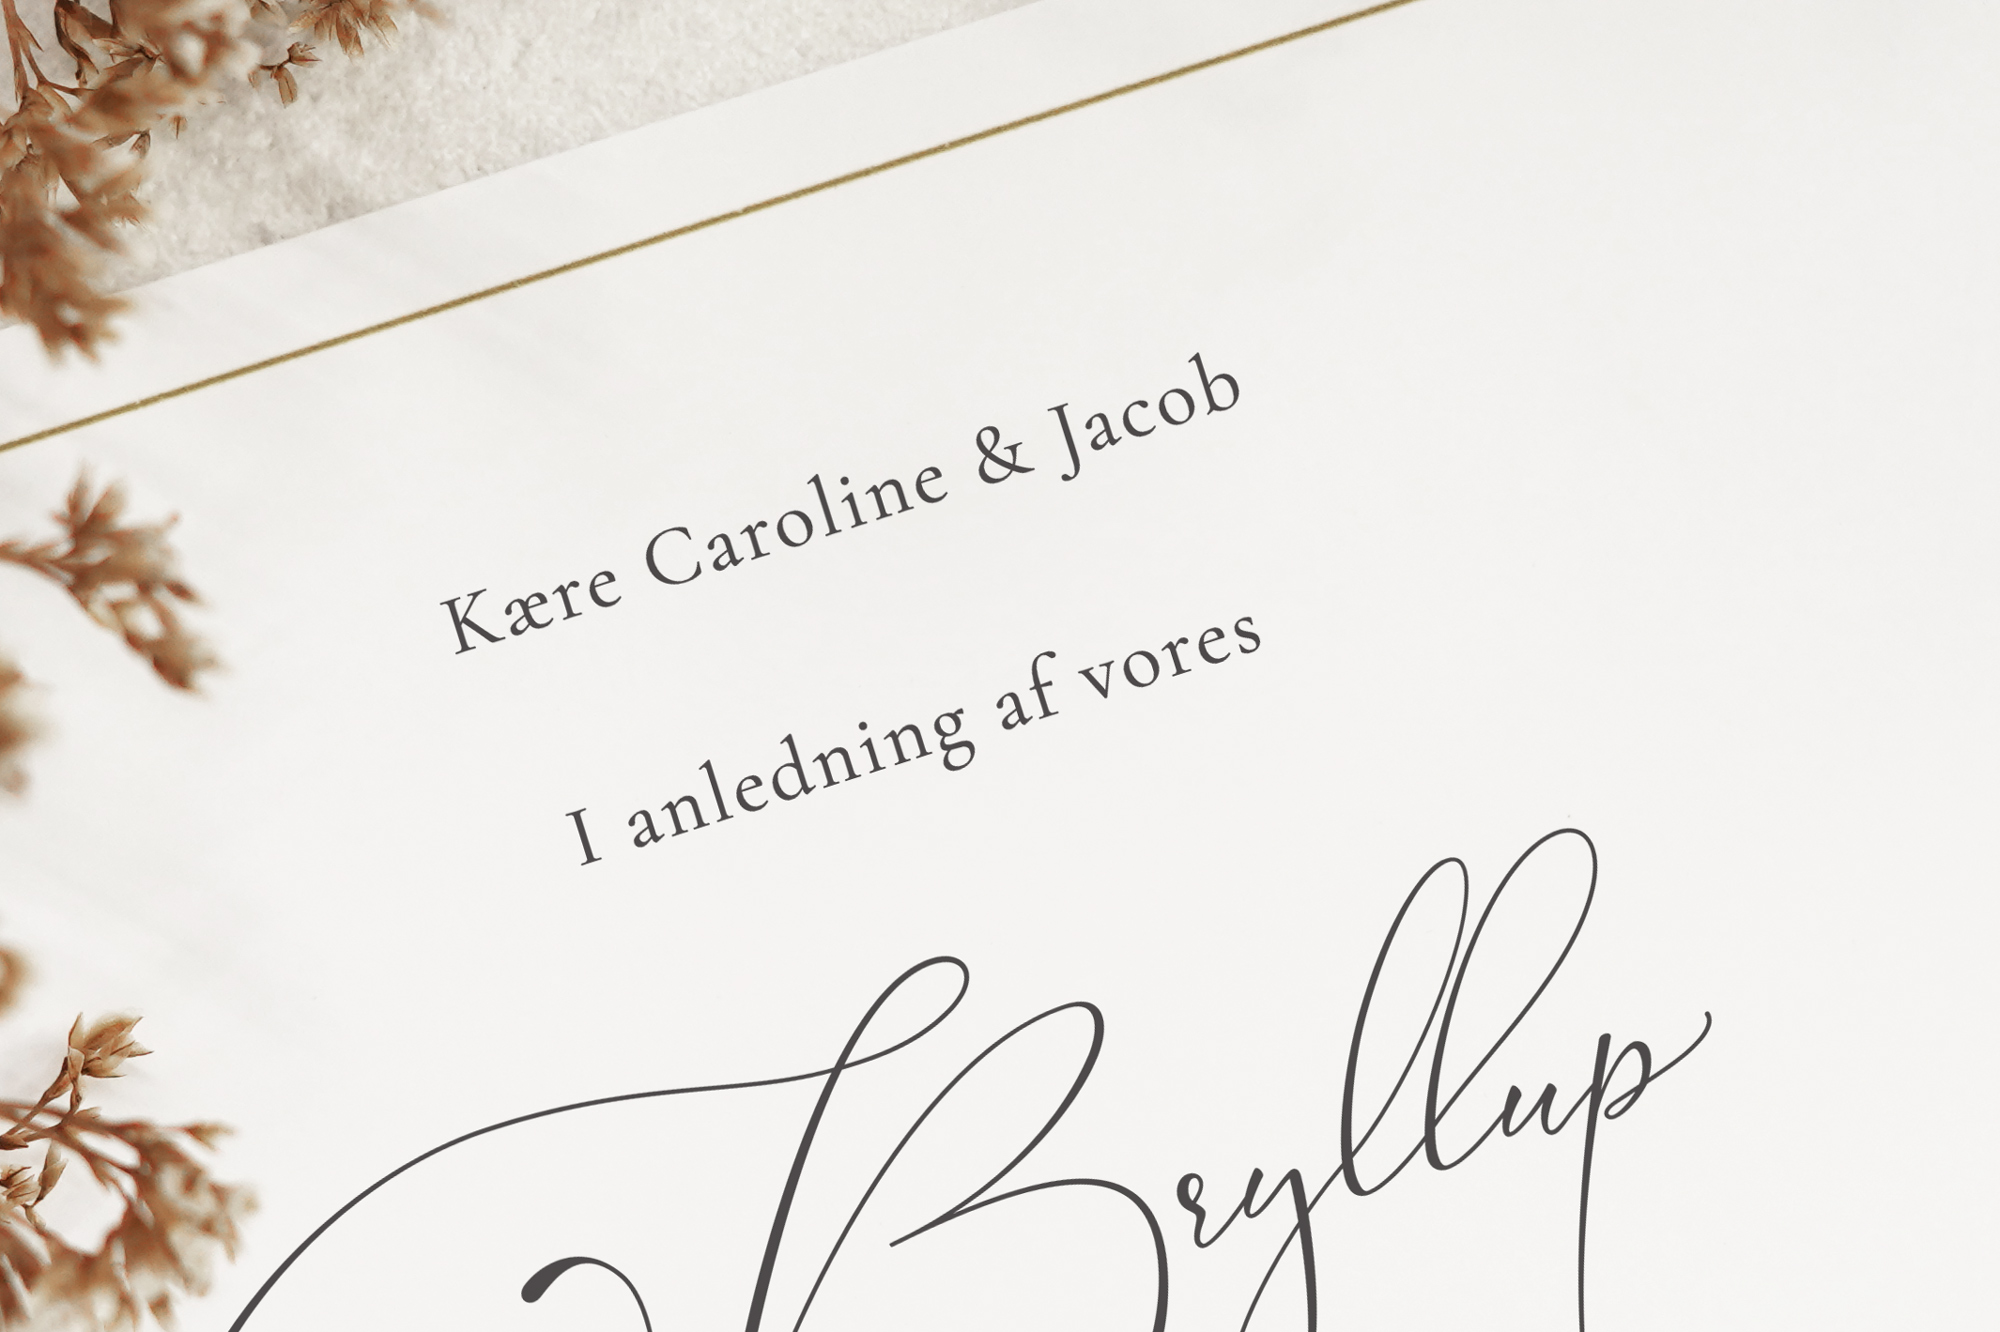 Kære Caroline & Jacob
I anledning af vores
Bryllup